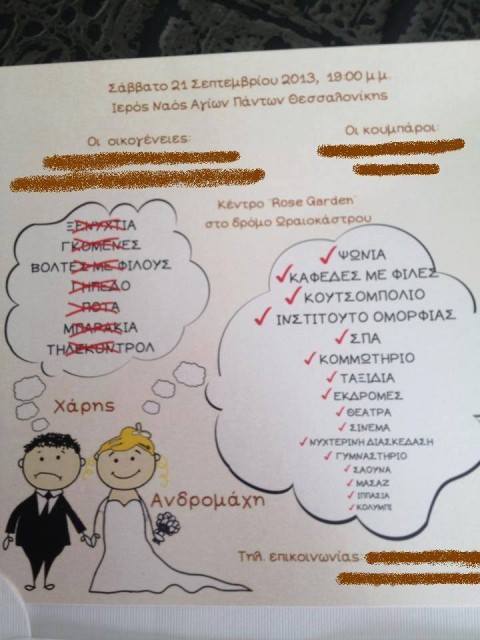 Σάββατο 21 Σεπτεμβρίου 2013, 19:00 μ.μ.
Ιερός Ναός Αγίων Πάντων Θεσσαλονίκης
Οι οικογένειες:
Οι κουμπάροι:
Κέντρο "Rose Garden"
στο δρόμο Ωραιοκάστρου
ΞΕΝΥΧΤΙΑ
ΓΚΟΜΕΝΕΣ
ΒΟΛΤΕΣ ΜΕ ΦΙΛΟΥΣ
ΓΗΠΕΔΟ
ΠΟΤΑ
ΜΠΑΡΑΚΙΑ
ΤΗΛΕΚΟΝΤΡΟΛ
ΨΩΝΙΑ
ΚΑΦΕΔΕΣ ΜΕ ΦΙΛΕΣ
ΚΟΥΤΣΟΜΠΟΛΙΟ
ΙΝΣΤΙΤΟΥΤΟ ΟΜΟΡΦΙΑΣ
ΣΠΑ
ΚΟΜΜΩΤΗΡΙΟ
ΤΑΞΙΔΙΑ
ΕΚΔΡΟΜΕΣ
ΘΕΑΤΡΑ
ΣΙΝΕΜΑ
ΝΥΧΤΕΡΙΝΗ ΔΙΑΣΚΕΔΑΣΗ
ΓΥΜΝΑΣΤΗΡΙΟ
ΣΑΟΥΝΑ
ΜΑΣΑΖ
ΙΠΠΑΣΙΑ
ΚΟΛΥΜΠΙ
Χάρης
Ανδρομάχη
Τηλ. επικοινωνίας: